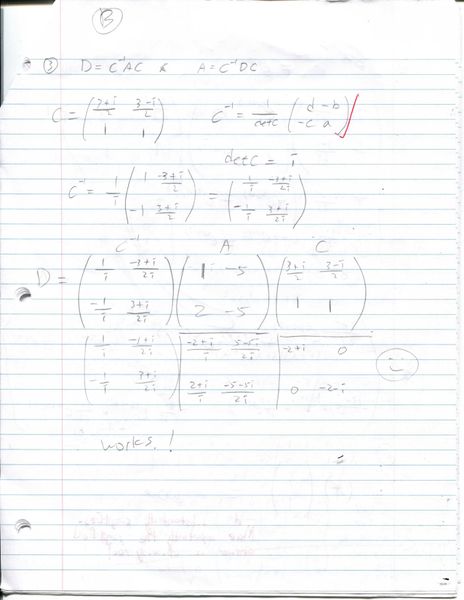 B
③ D = C⁻¹AC & A = C⁻¹DC
C = ( (3+i)/2 (3-i)/2 ; 1 1 ) C⁻¹ = 1/detC ( d -b ; -c a )
det C = i
C⁻¹ = 1/i ( 1 (-3+i)/2 ; -1 (3+i)/2 ) = ( 1/i (-3+i)/2i ; -1/i (3+i)/2i )
C⁻¹ A C
D = ( 1/i (-3+i)/2i ; -1/i (3+i)/2i ) ( 1 -5 ; 2 -5 ) ( (3+i)/2 (3-i)/2 ; 1 1 )
( 1/i (-3+i)/2i ; -1/i (3+i)/2i ) | (-2+i)/i (5-5i)/2i | -2+i 0 ; (2+i)/i (-5-5i)/2i | 0 -2-i
works!